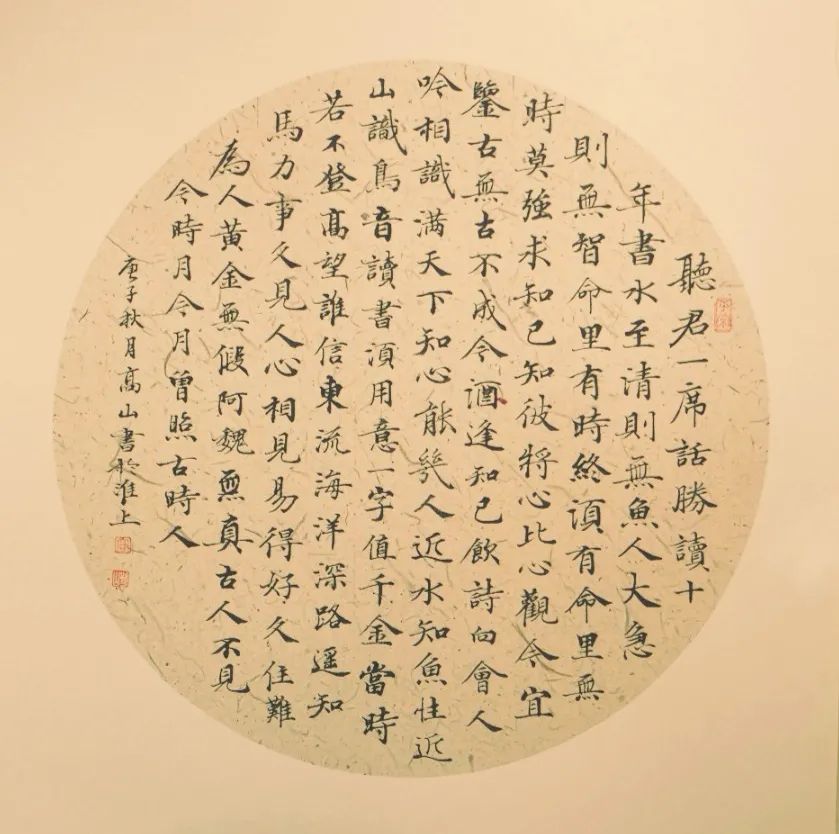 聽君一席話勝讀十
年書水至清則無魚人大急
則無智命里有時終須有命里無
時莫強求知已知彼將心比心觀今宜
鑒古無古不成今酒逢知已飲詩向會人
吟相識满天下知心能幾人近水知魚性近
山識鳥音讀書須用意一字值千金當時
若不登高望誰信東流海洋深路遥知
馬力事久見人心相見易得好久住難
為人黃金無假阿魏無真古人不見
今時月今月曾照古時人
庚子秋月高山書於淮上